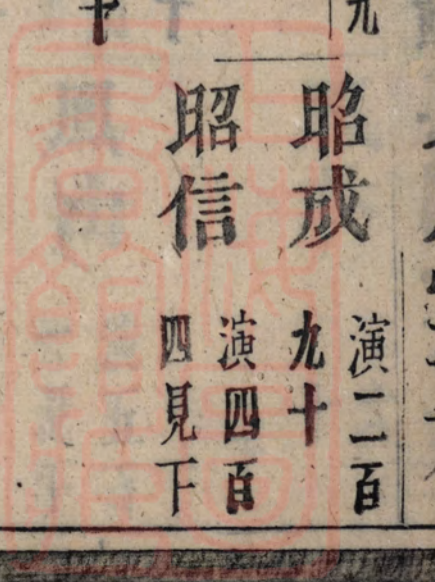 昭成 演二百
九十
昭信 演四百
四見下